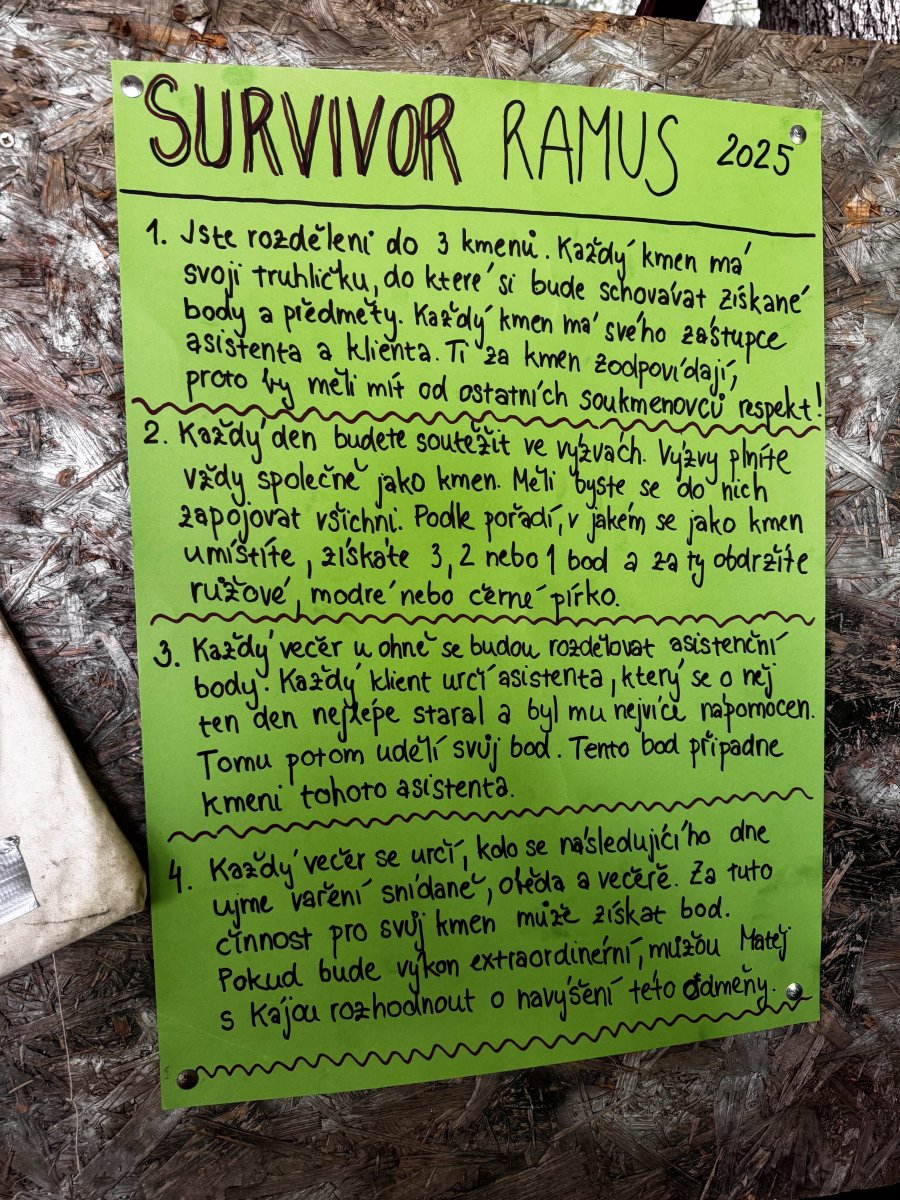 SURVIVOR RAMUS 2025
1. Jste rozděleni do 3 kmenů. Každý kmen má
svoji truhličku, do které si bude schovávat získané
body a předměty. Každý kmen má svého zástupce
asistenta a klienta. Ti za kmen zodpovídají,
proto by měli mít od ostatních soukmenovců respekt!
2. Každý den budete soutěžit ve výzvách. Výzvy plníte
vždy společně jako kmen. Měli byste se do nich
zapojovat všichni. Podle pořadí, v jakém se jako kmen
umístíte, získáte 3, 2 nebo 1 bod a za ty obdržíte
růžové, modré nebo černé pírko.
3. Každý večer u ohně se budou rozdělovat asistenční
body. Každý klient určí asistenta, který se o něj
ten den nejlépe staral a byl mu nejvíce nápomocen.
Tomu potom udělí svůj bod. Tento bod připadne
kmeni tohoto asistenta.
4. Každý večer se určí, kdo se následujícího dne
ujme vaření snídaně, oběda a večeře. Za tuto
činnost pro svůj kmen může získat bod.
Pokud bude výkon extraordinerní, můžou Matěj
s Kájou rozhodnout o navýšení této odměny.